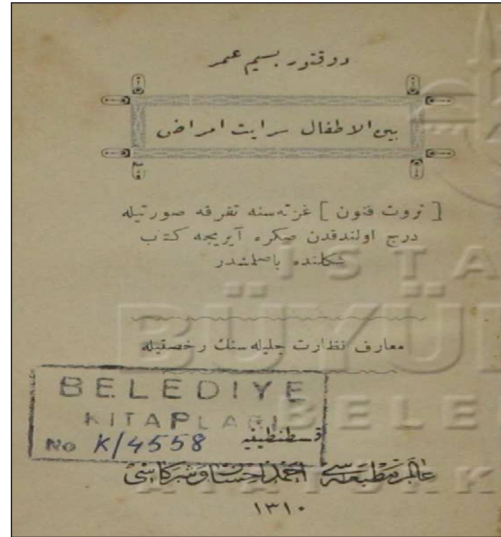 دوقتور بسيم عمر
بين الاطفال سرايت امراض
[ ثروت فنون ] غزته سنه تفرقه صورتيله
درج اولندقدن صكره آيريجه كتاب
شكلنده باصلمشدر
معارف نظارت جليله سنك رخصتيله
BELEDİYE
KİTAPLARI
No K/4558
قسطنطينيه
عالم مطبعه سی احمد احسان و شركاسی
١٣١٠
İSTA
BÜYÜ
BELE
ATATÜRK